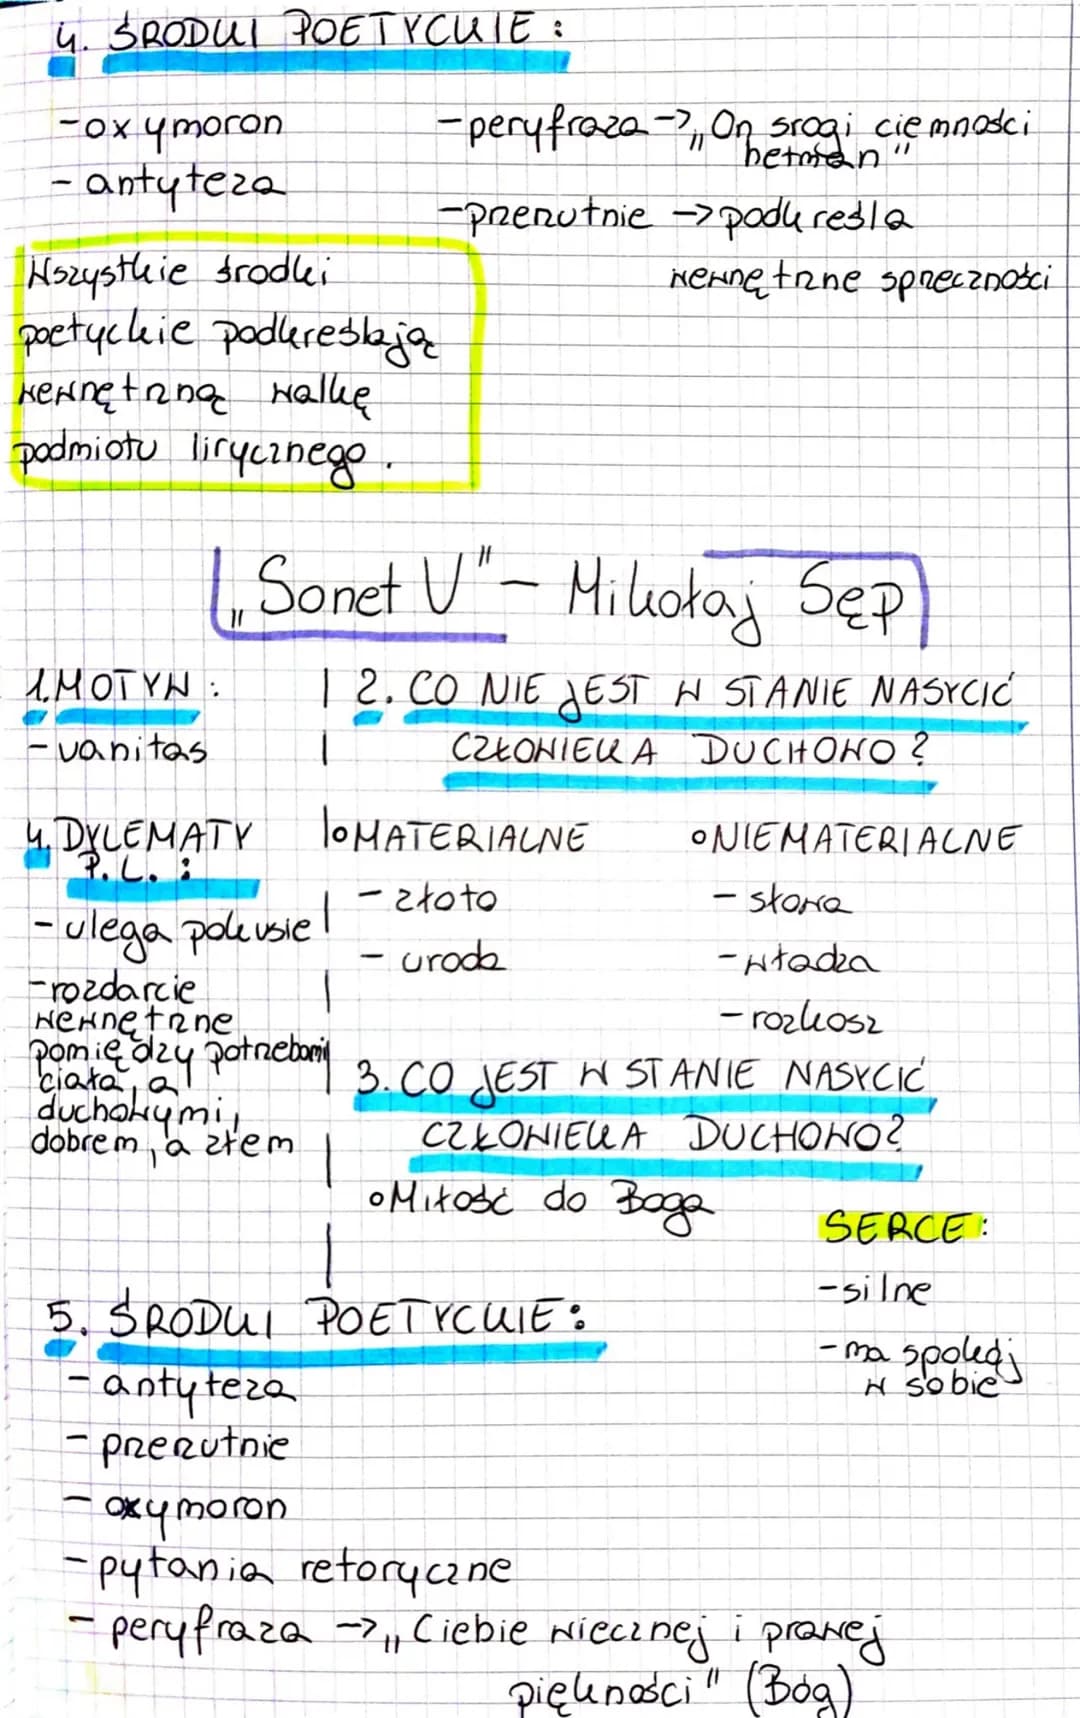 4. ŚRODKI POETYCKIE:
- oxymoron
- antyteza
- peryfraza -> „On srogi ciemności
hetman"
- przerzutnie -> podkreśla
wewnętrzne sprzeczności
Wszystkie środki
poetyckie podkreślają
wewnętrzną walkę
podmiotu lirycznego.
„Sonet V" - Mikołaj Sęp
1. MOTYW:
- vanitas
2. CO NIE JEST W STANIE NASYCIĆ
CZŁOWIEKA DUCHOWO?
4. DYLEMATY
P.L.:
- ulega pokusie
- rozdarcie
wewnętrzne
pomiędzy potrzebami
ciała, a
duchowymi,
dobrem, a złem
o MATERIALNE
- złoto
- uroda
o NIEMATERIALNE
- sława
- władza
- rozkosz
3. CO JEST W STANIE NASYCIĆ
CZŁOWIEKA DUCHOWO?
o Miłość do Boga
SERCE:
- silne
- ma spokój
w sobie
5. ŚRODKI POETYCKIE:
- antyteza
- przerzutnie
- oxymoron
- pytania retoryczne
- peryfraza -> „Ciebie wiecznej i prawej
piękności" (Bóg)